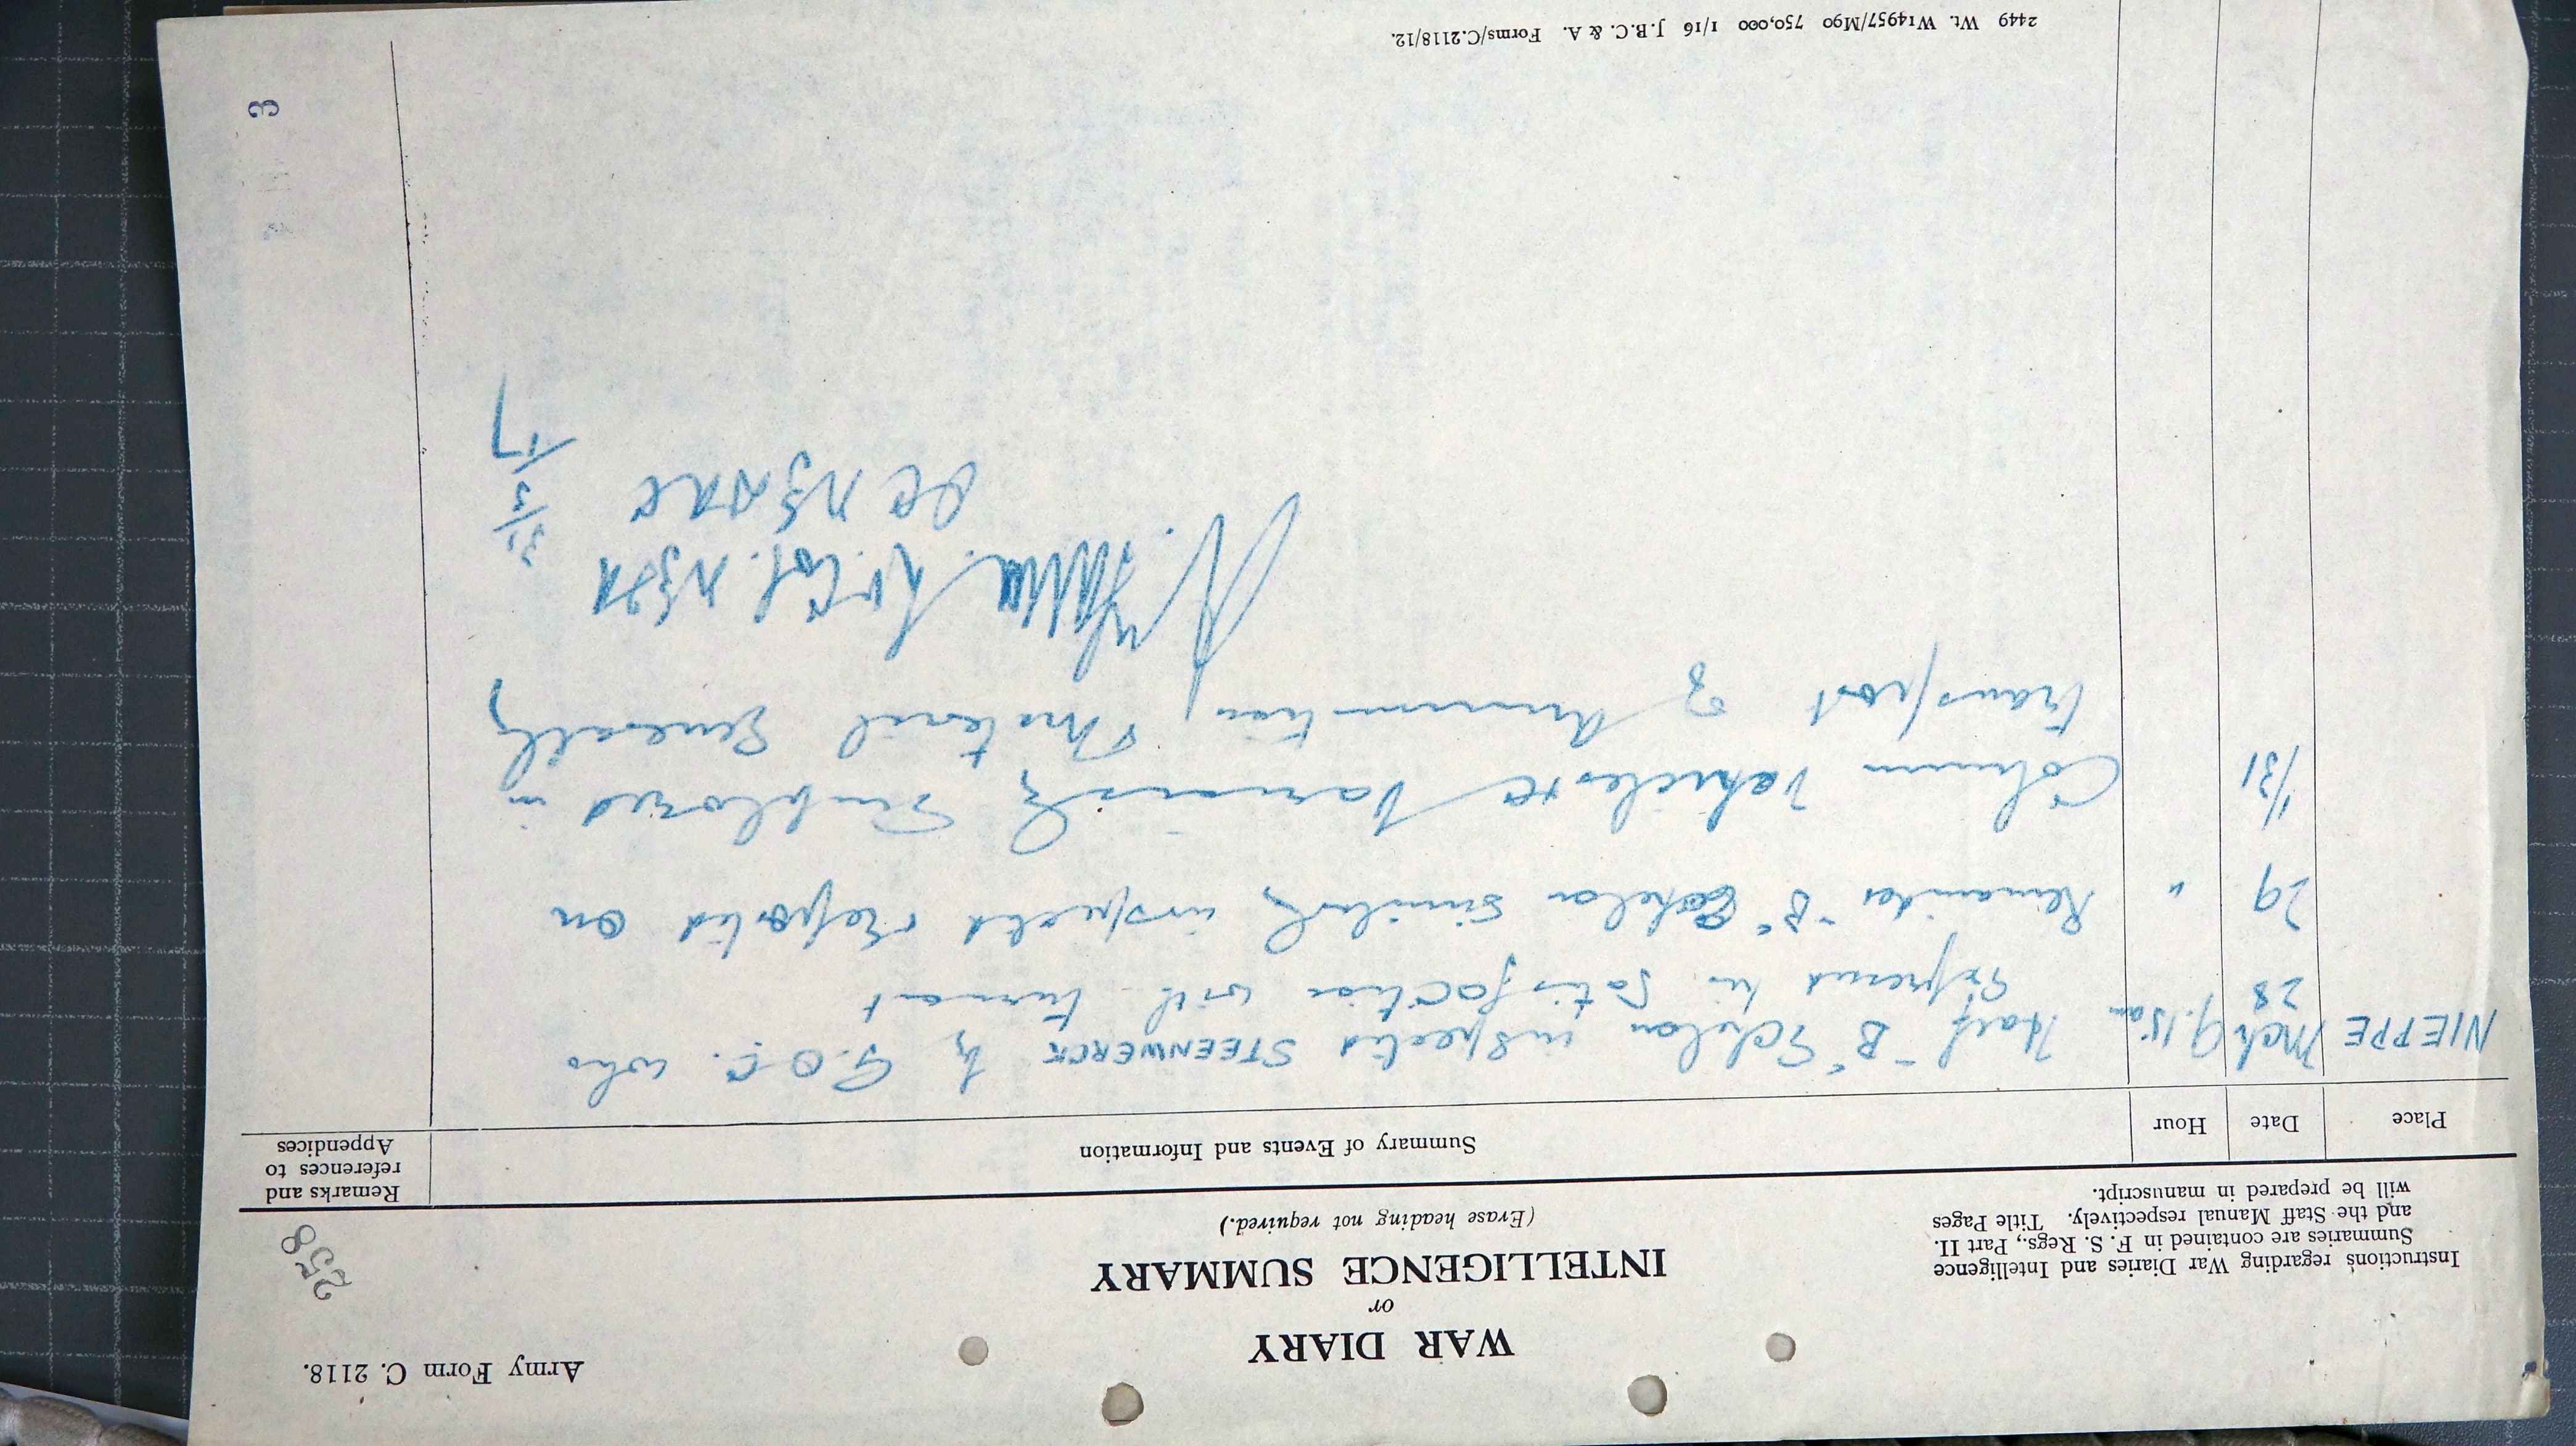 Army Form C. 2118.
WAR DIARY
or
INTELLIGENCE SUMMARY
(Erase heading not required.)
258
Instructions regarding War Diaries and Intelligence
Summaries are contained in F. S. Regs., Part II.
and the Staff Manual respectively. Title Pages
will be prepared in manuscript.
Place Date Hour Summary of Events and Information Remarks and
references to
Appendices
NIEPPE Mch 9.15 am Half "B" Echelon inspected STEENWERCK by G.O.C. who
28 Expressed his satisfaction with turnout
29 " Remainder "B" Echelon similarly inspected & reported on
1/31 Column Vehicles &c Variously Employed in
transport of Ammunition, & Material Generally
Lt Col. NZFA
OC NZDAC
31/3/17
3
2449 Wt. W14957/M90 750,000 1/16 J.B.C. & A. Forms/C.2118/12.